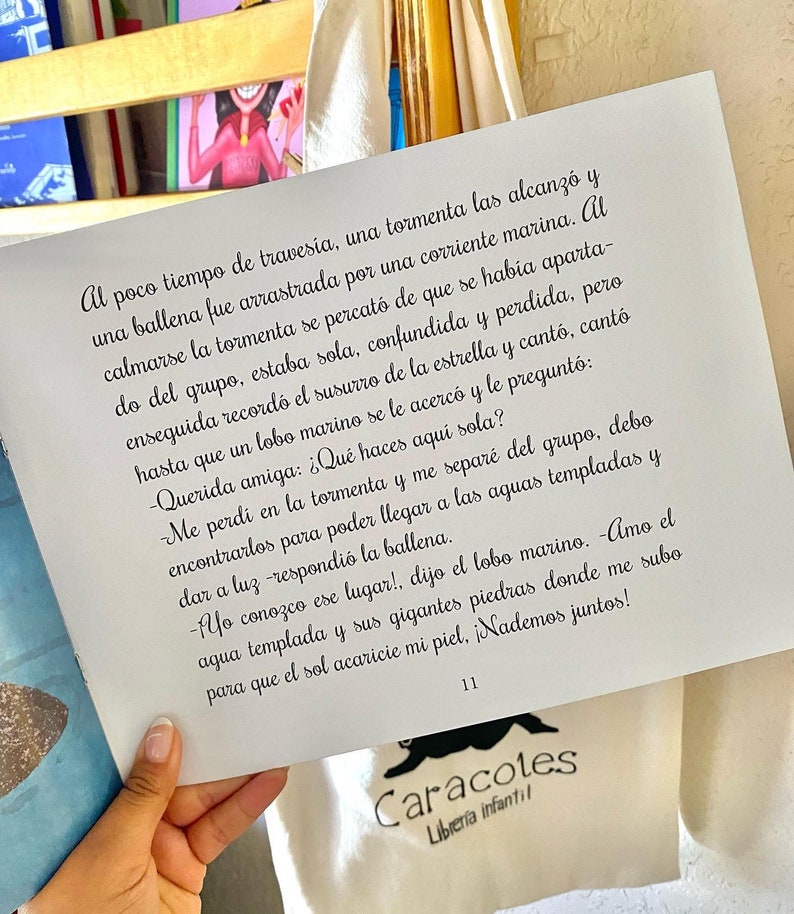 Al poco tiempo de travesía, una tormenta las alcanzó y
una ballena fue arrastrada por una corriente marina. Al
calmarse la tormenta se percató de que se había aparta-
do del grupo, estaba sola, confundida y perdida, pero
enseguida recordó el susurro de la estrella y cantó, cantó
hasta que un lobo marino se le acercó y le preguntó:
-Querida amiga: ¿Qué haces aquí sola?
-Me perdí en la tormenta y me separé del grupo, debo
encontrarlos para poder llegar a las aguas templadas y
dar a luz -respondió la ballena.
-¡Yo conozco ese lugar!, dijo el lobo marino. -Amo el
agua templada y sus gigantes piedras donde me subo
para que el sol acaricie mi piel, ¡Nademos juntos!
11
Caracoles
Librería infantil